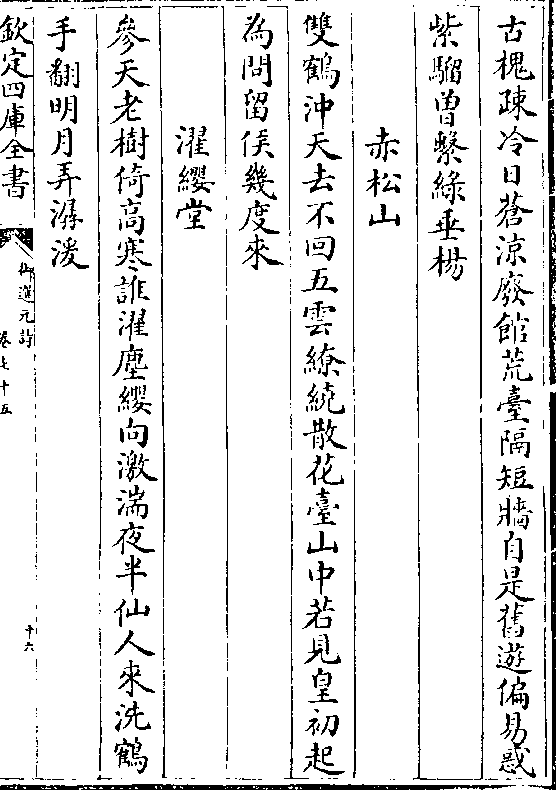 古槐疎冷日蒼涼廢館荒臺隔短牆自是舊遊偏易感
紫騮曽繫綠垂楊
赤松山
雙鶴沖天去不回五雲繚繞散花臺山中若見皇初起
為問留侯幾度來
濯纓堂
參天老樹倚高寒誰濯塵纓向激湍夜半仙人來洗鶴
手翻明月弄潺湲
欽定四庫全書
御選元詩
卷七十五
十六